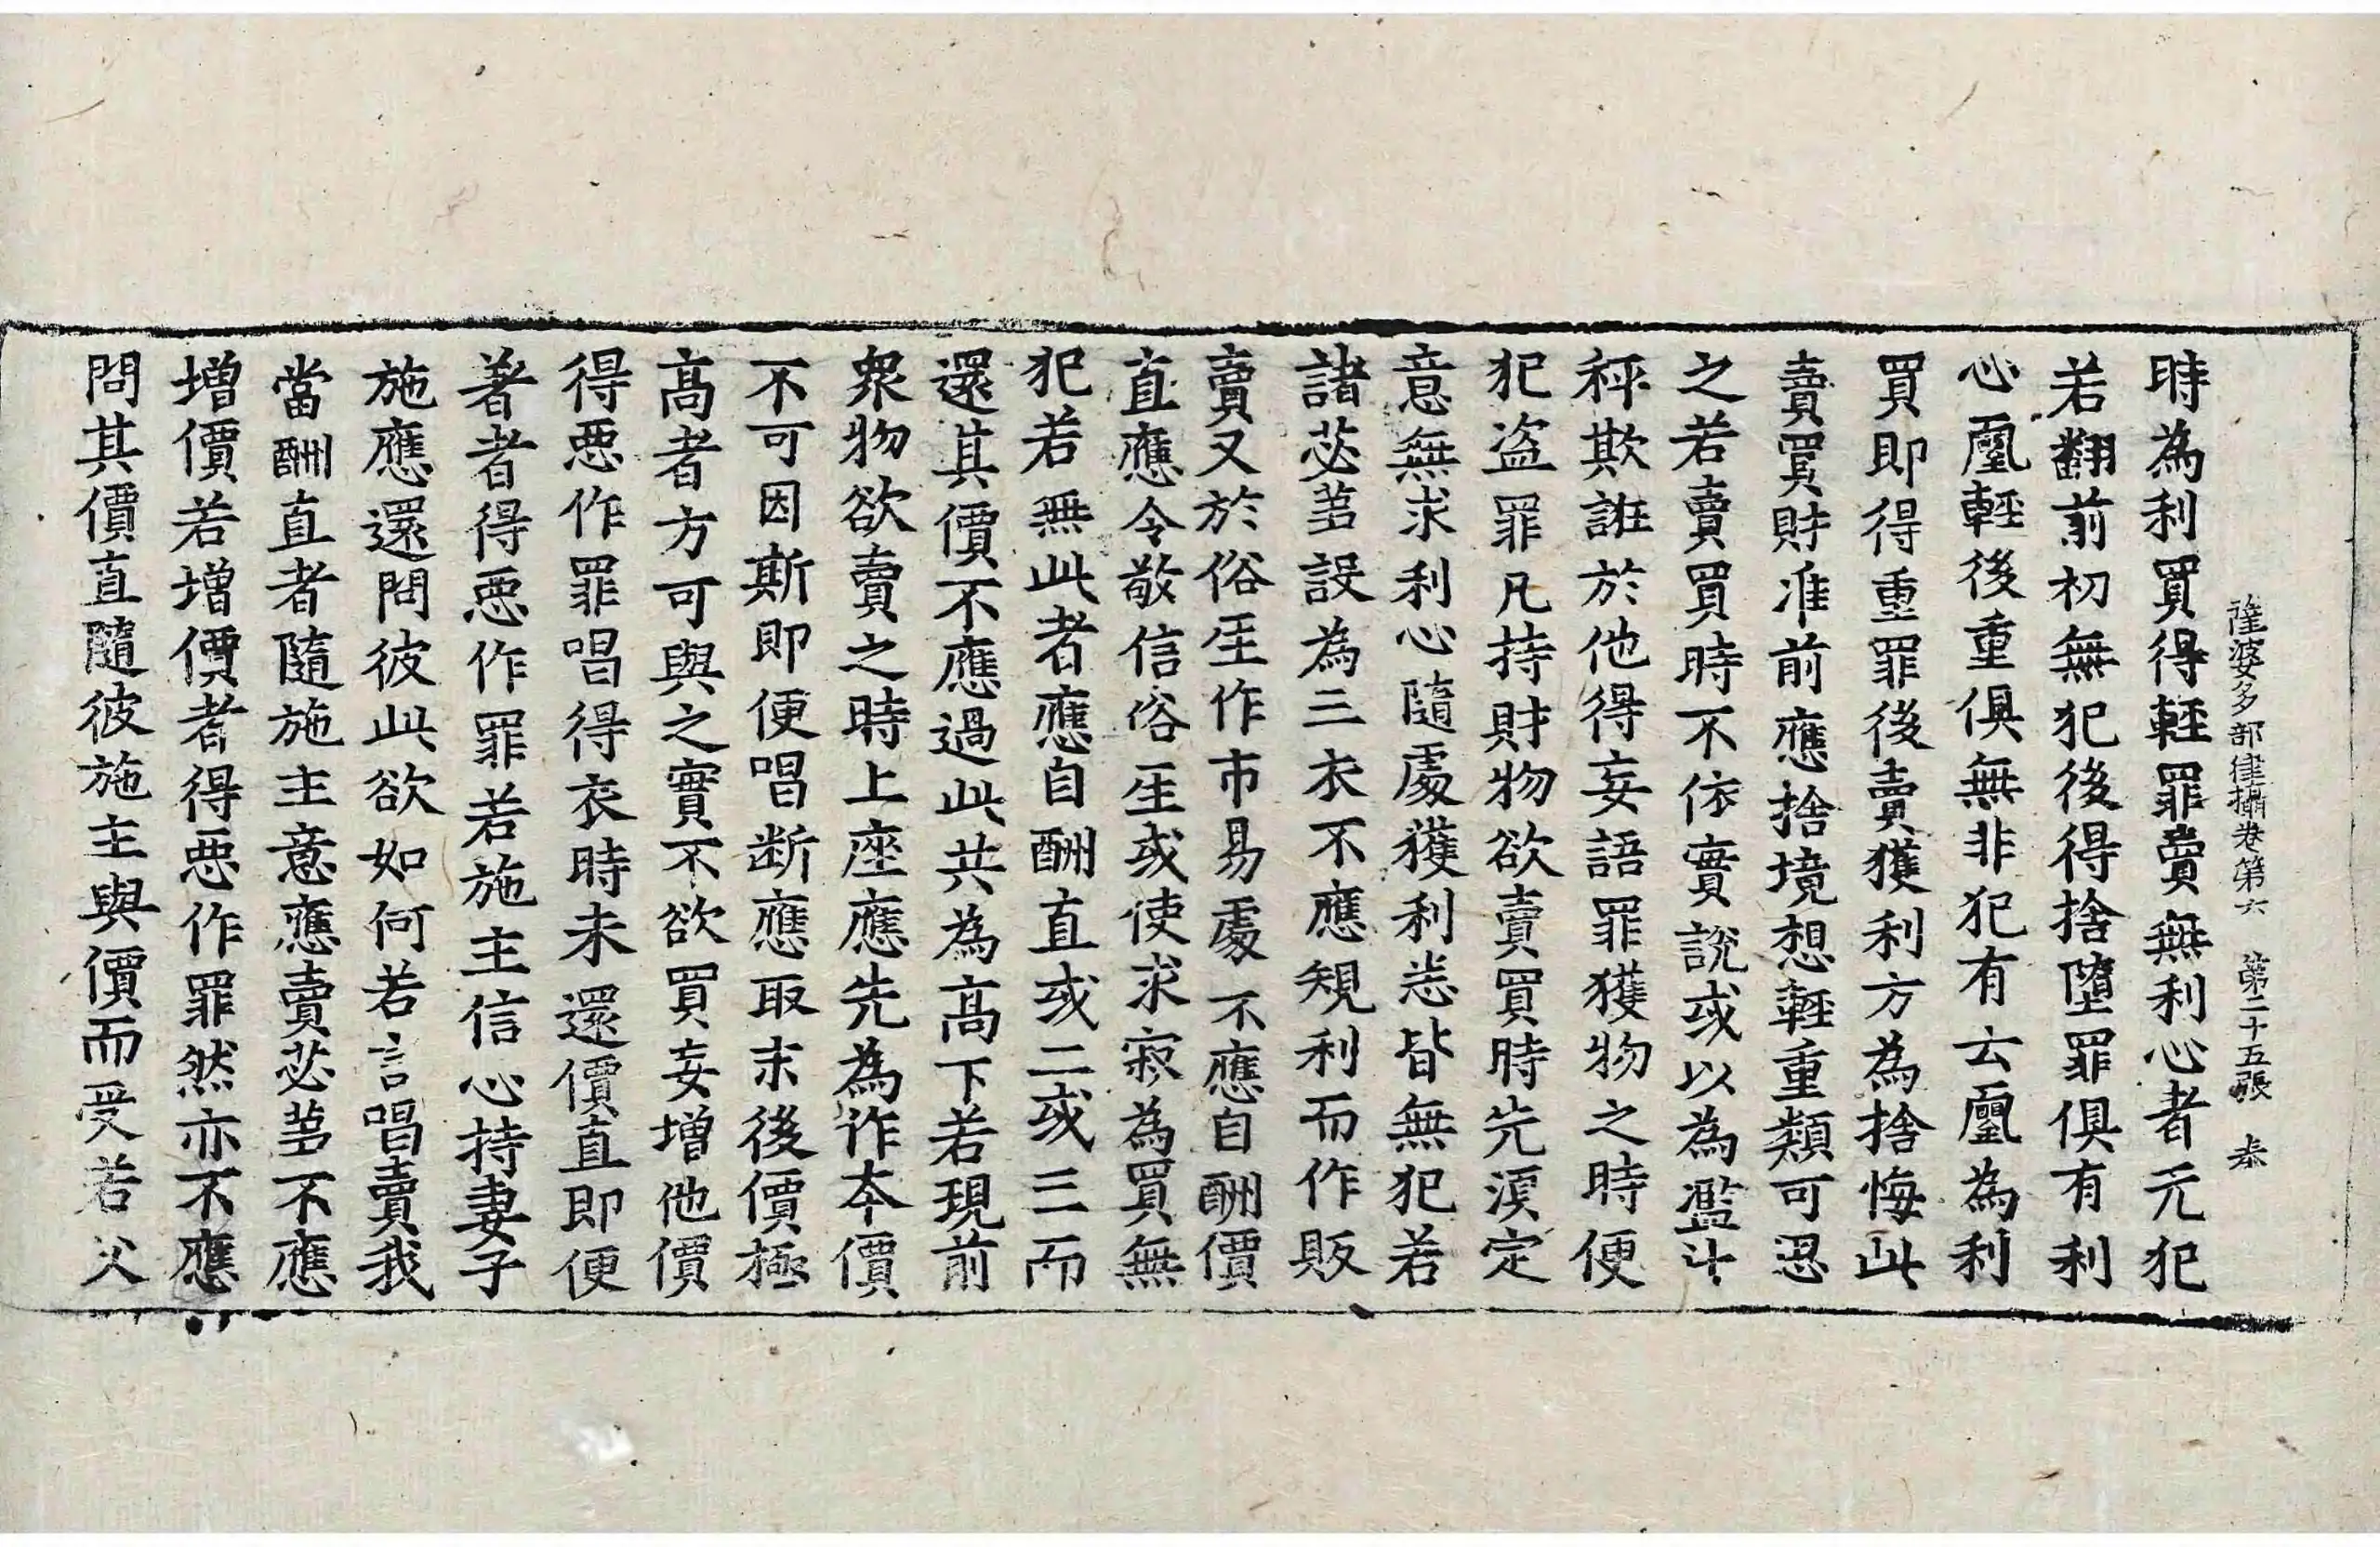 薩婆多部律攝卷第六　第二十五張　恭
時為利買得輕罪賣無利心者元犯
若翻前初無犯後得捨墮罪俱有利
心𤯝輕後重俱無非犯有云𤯝為利
買即得重罪後賣獲利方為捨悔此
賣買財准前應捨境想輕重類可思
之若賣買時不依實說或以為濫斗
秤欺誑於他得妄語罪獲物之時便
犯盜罪凡持財物欲賣買時先湏定
意無求利心隨處獲利悉皆無犯若
諸苾蒭設為三衣不應規利而作販
賣又於俗𤯔作市易處不應自酬價
直應令敬信俗𤯔或使求寂為買無
犯若無此者應自酬直或二或三而
還其價不應過此共為高下若現前
眾物欲賣之時上座應先為作夲價
不可因斯即便唱断應取末後價極
高者方可與之實不欲買妄增他價
得惡作罪唱得衣時未還價直即便
著者得惡作罪若施主信心持妻子
施應還問彼此欲如何若言唱賣我
當酬直者隨施主意應賣苾蒭不應
增價若增價者得惡作罪然亦不應
問其價直隨彼施主與價而受若父